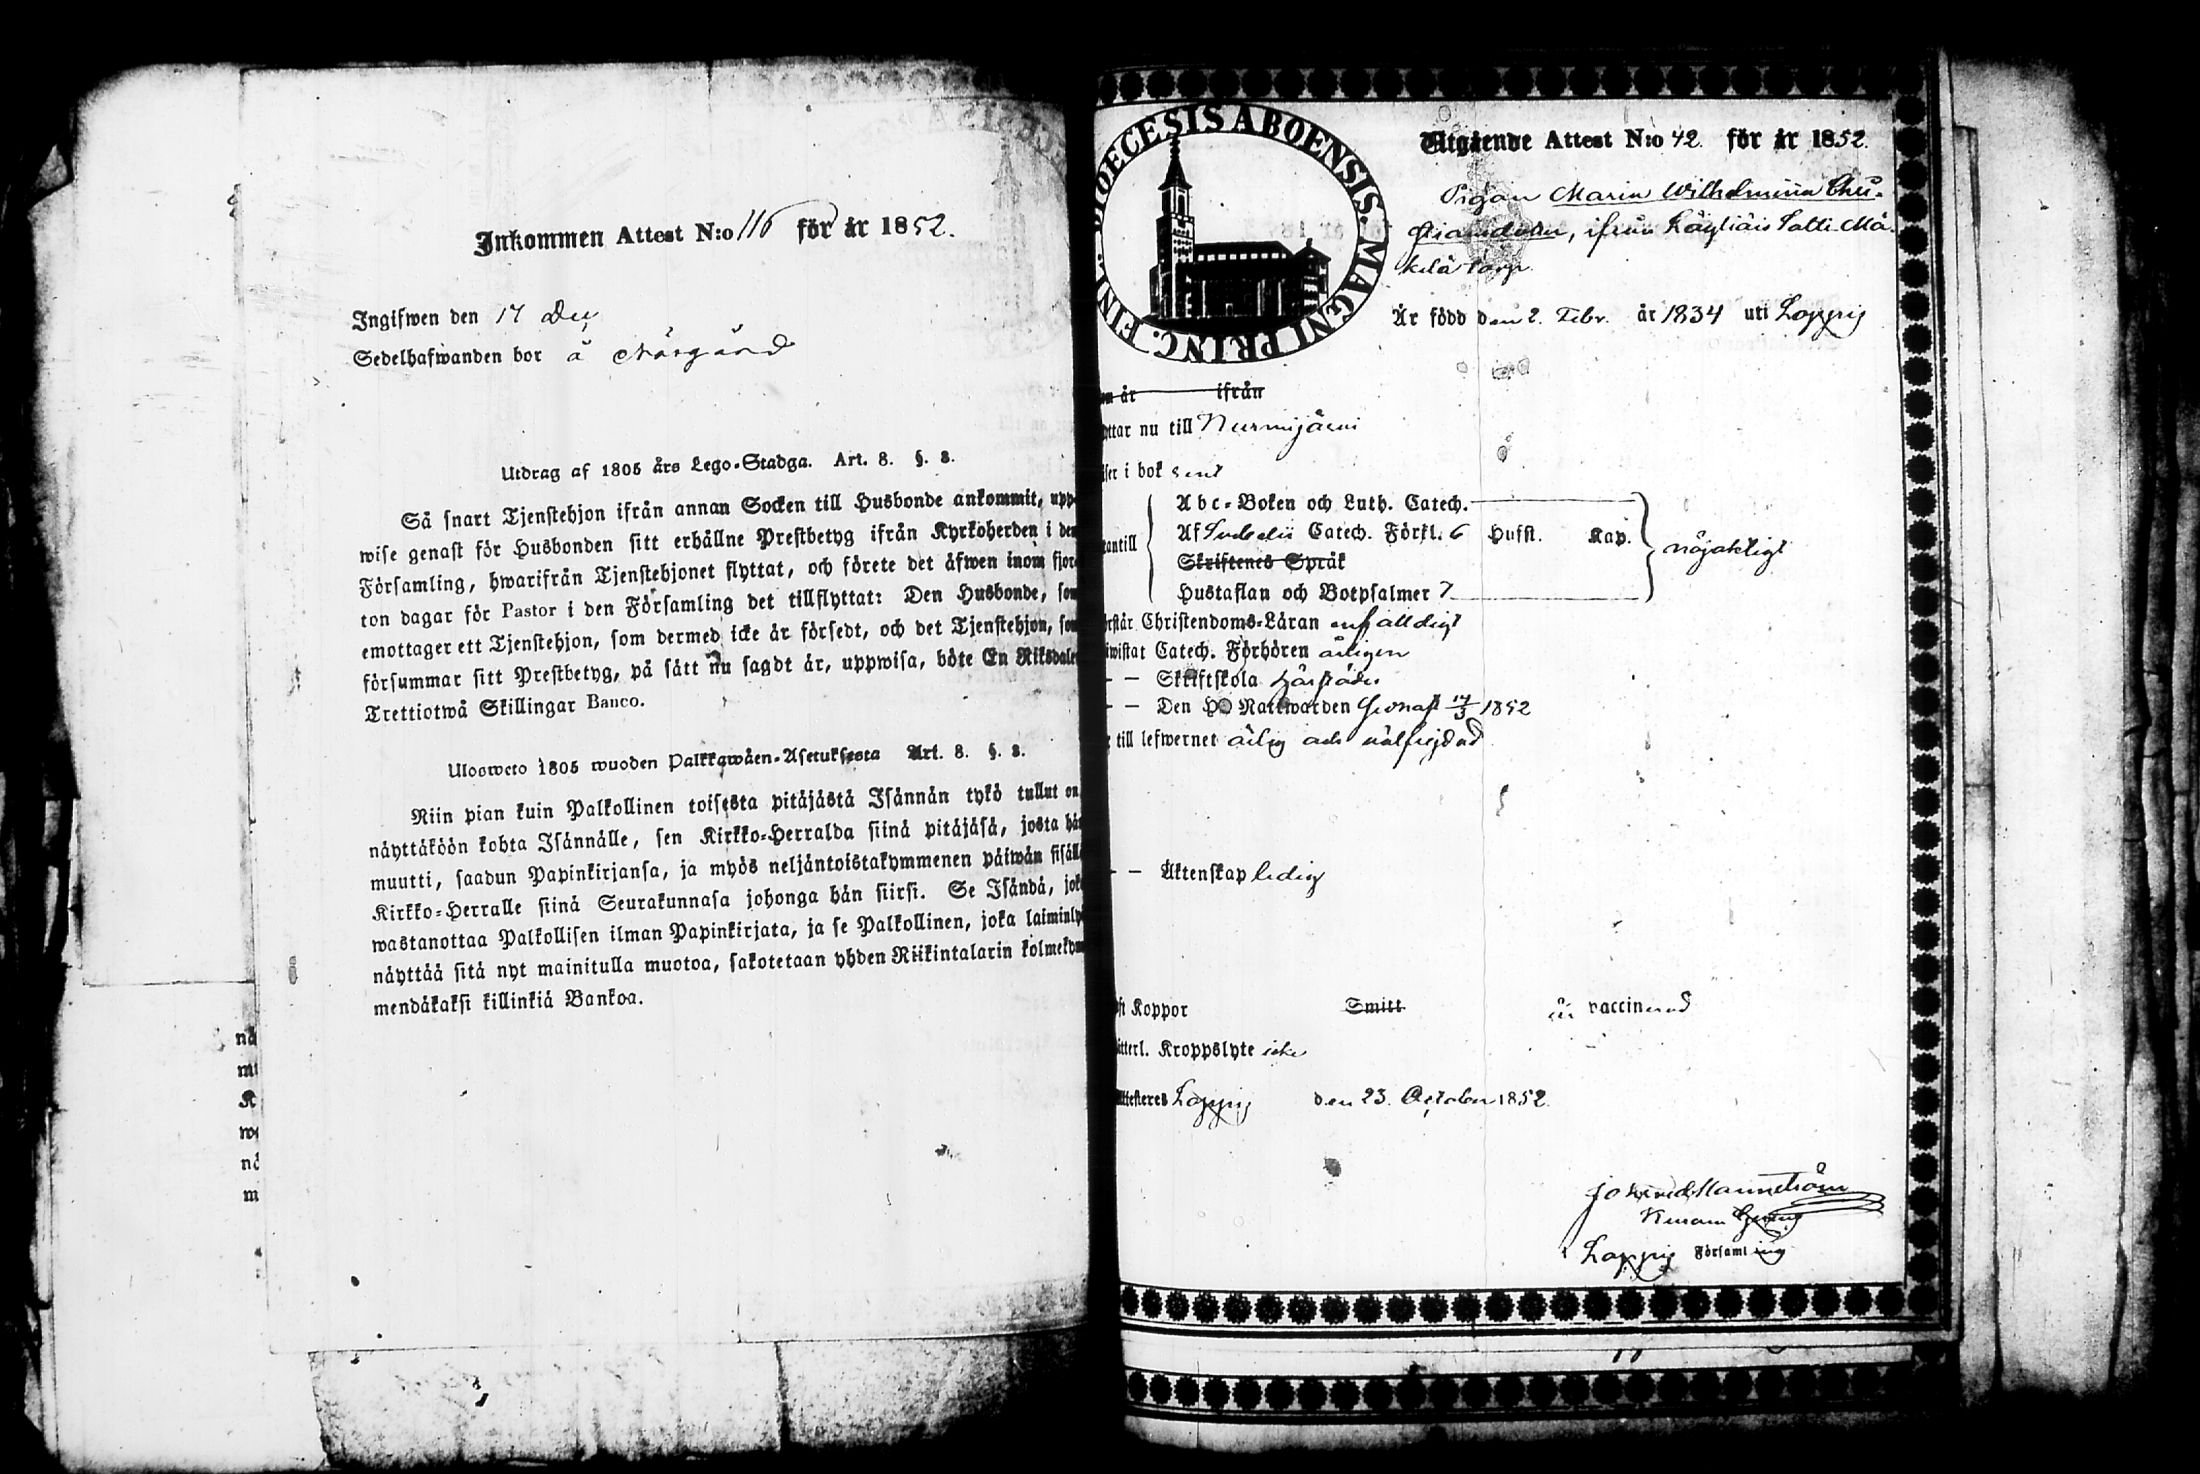 Inkommen Attest N:o 116 för år 1852.
Ingifwen den 17 Dec
Sedelhafwanden bor å Nårgård
Utdrag af 1805 års Lego-Stadga. Art. 8. §. 8.
Så snart Tjenstehjon ifrån annan Socken till Husbonde ankommit, upp-
wise genast för Husbonden sitt erhållne Prestbetyg ifrån Kyrkoherden i den
Församling, hwarifrån Tjenstehjonet flyttat, och förete det äfwen inom fjor-
ton dagar för Pastor i den Församling det tillflyttat: Den Husbonde, som
emottager ett Tjenstehjon, som dermed icke är försedt, och det Tjenstehjon, som
försummar sitt Prestbetyg, på sätt nu sagdt är, uppwisa, böte En Riksdaler
Trettiotwå Skillingar Banco.
Ulosweto 1805 wuoden Palkkawäen-Asetuksesta Art. 8. §. 8.
Niin pian kuin Palkollinen toisesta pitäjästä Isännän tykö tullut on,
näyttäköön kohta Isännälle, sen Kirkko-Herralda siinä pitäjäsä, josta hän
muutti, saadun Papinkirjansa, ja myös neljäntoistakymmenen päiwän sisällä
Kirkko-Herralle siinä Seurakunnasa johonga hän siirsi. Se Isändä, joka
wastanottaa Palkollisen ilman Papinkirjata, ja se Palkollinen, joka laiminlyö
näyttää sitä nyt mainitulla muotoa, sakotetaan yhden Riikintalarin kolmekym-
mendäkaksi killinkiä Bankoa.
DIOECESIS ABOENSIS. MAGNI PRINC. FINL.
Utgående Attest N:o 42. för år 1852.
Pigan Maria Wilhelmina Chri-
stiansdotter, ifrån Läyliäis Latti Mä-
kelä torp.
Är född den 2. Febr. år 1834 uti Loppis
om år ifrån
yttar nu till Nurmijärvi
äser i bok rent
Abc-Boken och Luth. Catech.
utantill Af Svebelii Catech. Förkl. 6 Hufst. Kap. nöjaktigt
Skriftenes Språk
Hustaflan och Botpsalmer 7
örstår Christendoms-Läran enfaldigt
iwistat Catech. Förhören årligen
— — Skriftskola härstädes
— — Den H. Nattwarden senast 14/3 1852
till lefwernet ärlig och wälfrejdad
— — Äktenskap ledig
ft Koppor Smitt är vaccinerad
ätterl. Kroppslyte icke
Attesteres Loppis den 23. October 1852.
i Loppis Församling